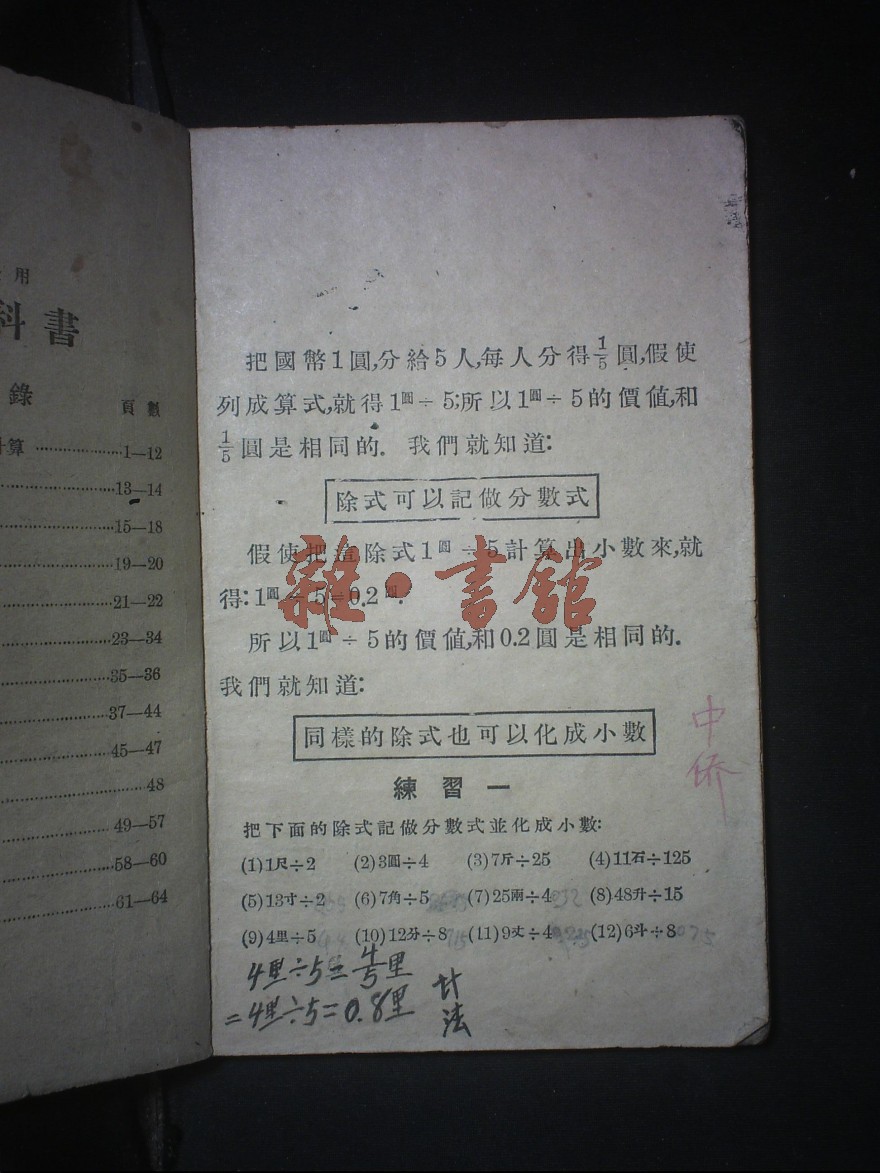 用
科書
錄
頁數
計算 ……………1—12
……………13—14
……………15—18
……………19—20
……………21—22
……………23—34
……………35—36
……………37—44
……………45—47
……………48
……………49—57
……………58—60
……………61—64
把國幣1圓,分給5人,每人分得1/5圓,假使
列成算式,就得1圓÷5;所以1圓÷5的價值,和
1/5圓是相同的. 我們就知道:
除式可以記做分數式
假使把這除式1圓÷5計算出小數來,就
得:1圓÷5=0.2圓.
雜·書舘
所以1圓÷5的價值,和0.2圓是相同的.
我們就知道:
同樣的除式也可以化成小數
中
僑
練習一
把下面的除式記做分數式並化成小數:
(1)1尺÷2 (2)3圓÷4 (3)7斤÷25 (4)11石÷125
(5)13寸÷2 (6)7角÷5 (7)25兩÷4 (8)48升÷15
(9)4里÷5 (10)12分÷8 (11)9丈÷4 (12)6斗÷8
4里÷5=4/5里
=4里÷5=0.8里
計法